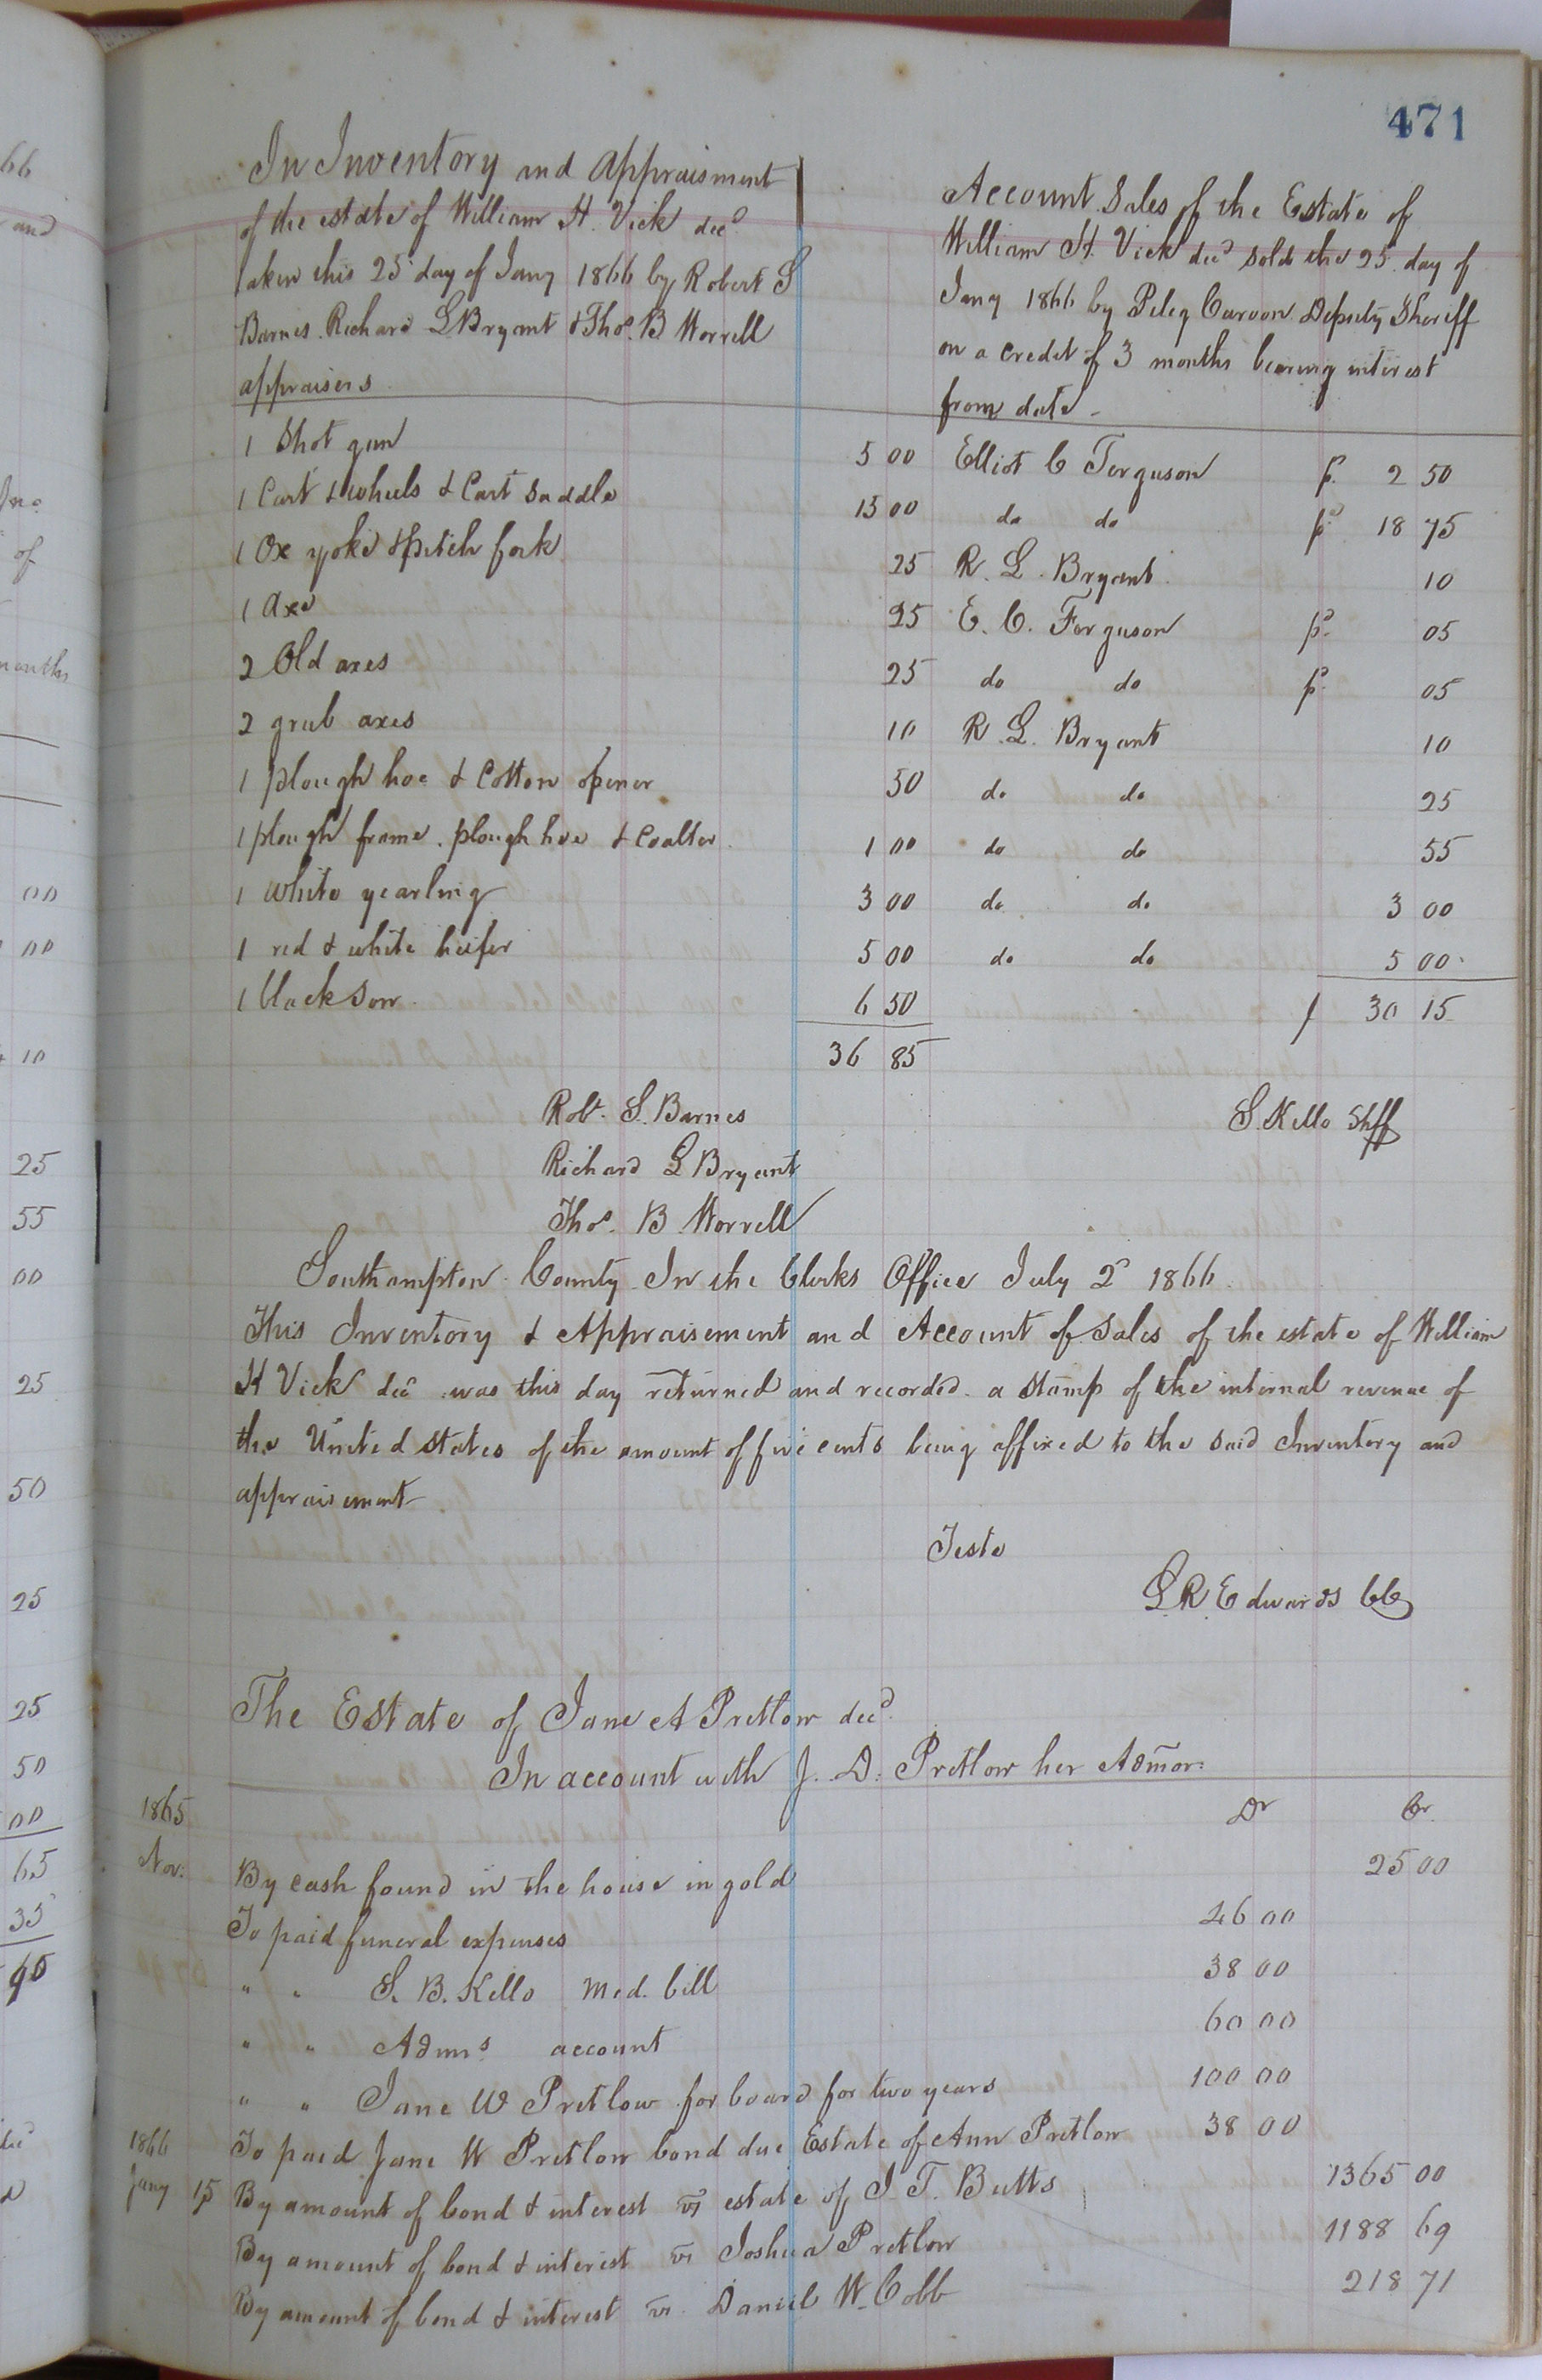 471
In Inventory and Appraisment
of the estate of William H. Vick decd
taken this 25 day of Jany 1866 by Robert S
Barnes. Richard L Bryant & Thos. B Worrell
appraisers
Account Sales of the Estate of
William H. Vick decd sold the 25. day of
Jany 1866 by Peleg Carvon Deputy Sheriff
on a credit of 3 months bearing interest
from date -
1 Shot gun 5 00 Elliot C Ferguson pd 2 50
1 Cart & wheels & Cart Saddle 15 00 do do pd 18 75
1 Ox yoke & pitch fork 25 R. L. Bryant 10
1 Axe 25 E. C. Ferguson pd 05
2 Old axes 25 do do pd 05
2 grub axes 10 R. L. Bryant 10
1 plough hoe & Cotton opener 50 do do 25
1 plough frame. plough hoe & Coalter 1 00 do do 55
1 White yearling 3 00 do do 3 00
1 red & white heifer 5 00 do do 5 00
1 black Sow 6 50 30 15
36 85
Robt. S. Barnes
Richard L Bryant
Thos. B Worrell
S. Kello Shff
Southampton County In the Clerks Office July 2d 1866
This Inventory & Appraisement and Account of Sales of the estate of William
H Vick decd was this day returned and recorded a Stamp of the internal revenue of
the United States of the amount of five cents being affixed to the Said Inventory and
appraisement
Teste
L R Edwards CC
The Estate of Jane A Pretlow decd
In account with J. D. Pretlow her Admor:
1865 Dr Cr
Nov: By cash found in the house in gold 25 00
To paid funeral expenses 46 00
" " S. B. Kello Med. bill 38 00
" " Adms account 60 00
" " Jane W Pretlow for board for two years 100 00
1866 To paid Jane W Pretlow bond due Estate of Ann Pretlow 38 00
Jany 15 By amount of bond & interest vs estate of J. T. Butts 1365 00
By amount of bond & interest vs Joshua Pretlow 1188 69
By amount of bond & interest vs. Daniel W. Cobb 218 71
66
and
Jno.
of
months
00
00
10
25
55
00
25
50
25
25
50
00
65
35